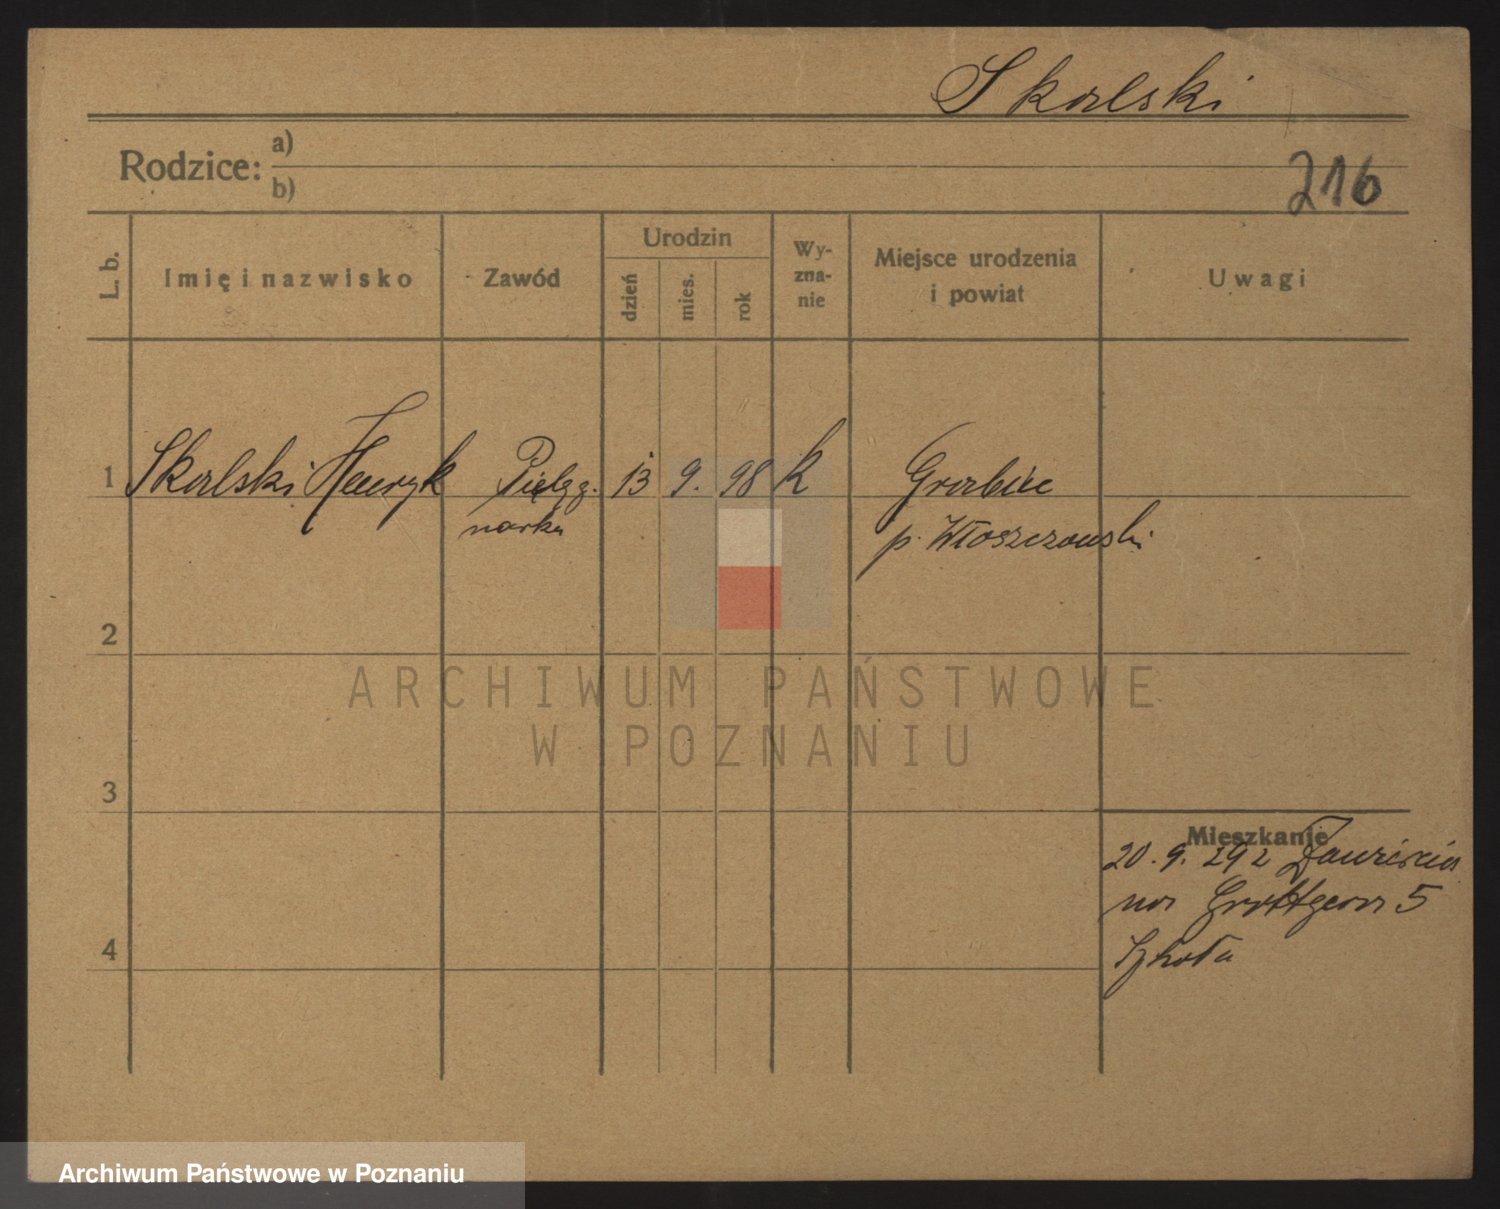 Skalski
Rodzice: a)
b)
216
L. b.
Imię i nazwisko
Zawód
Urodzin
dzień
mies.
rok
Wy-
zna-
nie
Miejsce urodzenia
i powiat
Uwagi
1 Skalski Henryk Pielęg. 13 9. 98 k
narka
p. Włoszczowski
2
ARCHIWUM PAŃSTWOWE
W POZNANIU
3
Mieszkanie
20. 9. 29 z
na Grottgera 5
4
Archiwum Państwowe w Poznaniu